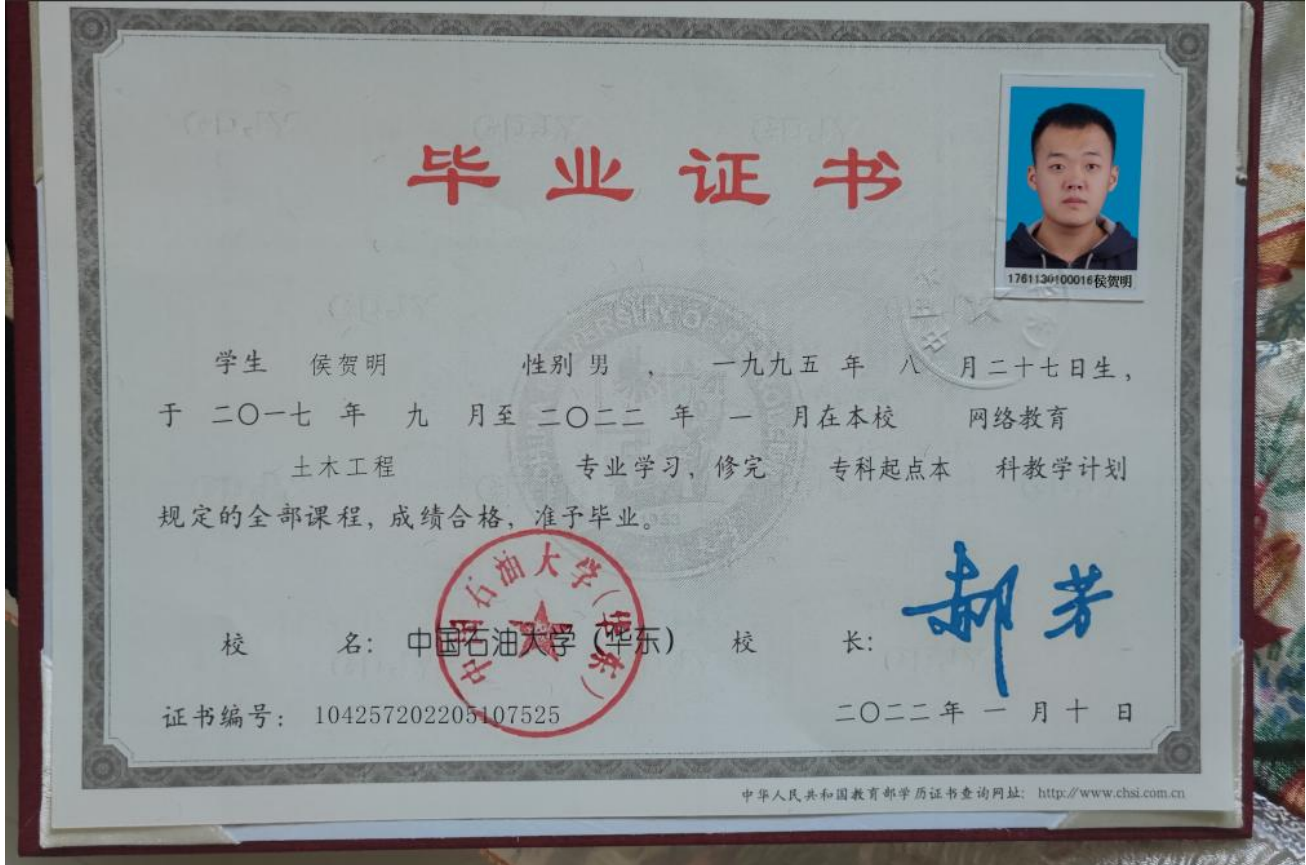 毕业证书
1761130100016侯贺明
学生 侯贺明 性别 男 ， 一九九五 年 八 月二十七日生，
于 二〇一七 年 九 月至 二〇二二 年 一 月在本校 网络教育
土木工程 专业学习，修完 专科起点本 科教学计划
规定的全部课程，成绩合格，准予毕业。
中国石油大学（华东）
校 名：中国石油大学（华东） 校 长：郝芳
证书编号：104257202205107525 二〇二二年 一 月 十 日
中华人民共和国教育部学历证书查询网址：http://www.chsi.com.cn